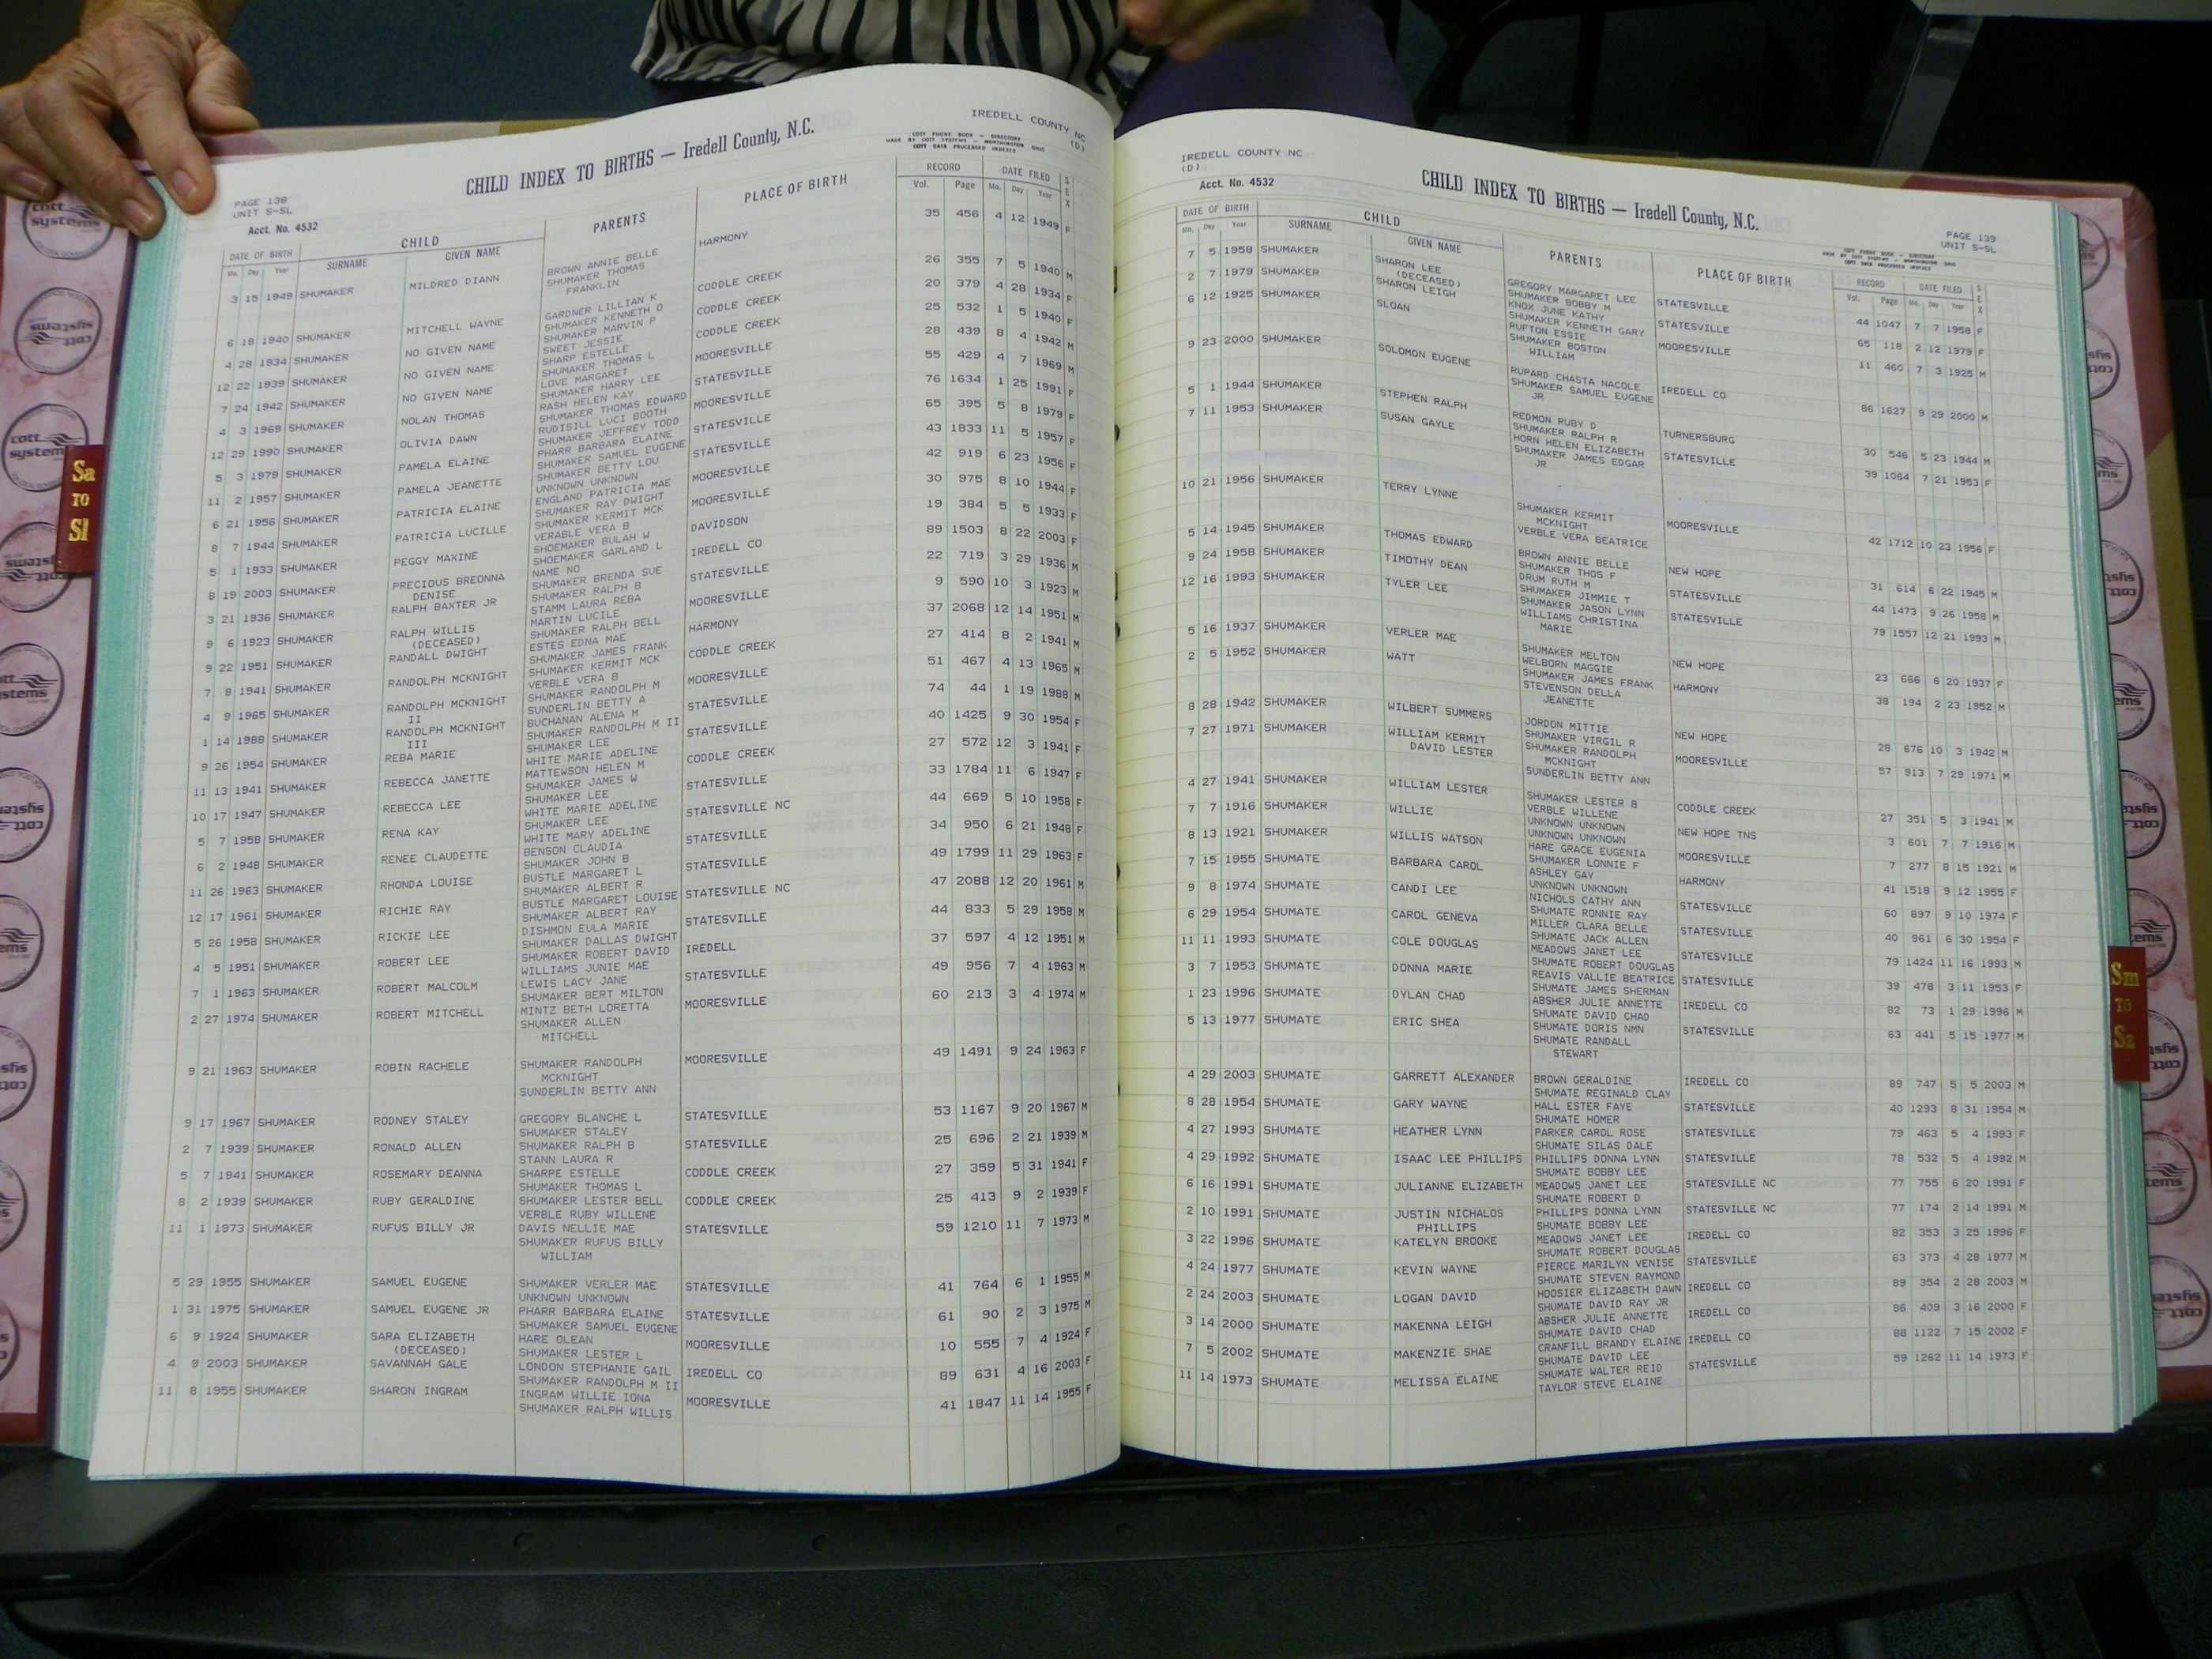 IREDELL COUNTY NC
(D)
CHILD INDEX TO BIRTHS — Iredell County, N.C.
COTT PHONE BOOK — DIRECTORY
MADE BY COTT SYSTEMS — WORTHINGTON, OHIO
COTT DATA PROCESSED INDEXES
PAGE 138
UNIT S-SL
Acct. No. 4532
DATE OF BIRTH CHILD PARENTS PLACE OF BIRTH RECORD DATE FILED SEX
Mo. Day Year SURNAME GIVEN NAME Vol. Page Mo. Day Year
3 15 1949 SHUMAKER MILDRED DIANN BROWN ANNIE BELLE HARMONY 35 456 4 12 1949 F
SHUMAKER THOMAS
FRANKLIN
6 18 1940 SHUMAKER MITCHELL WAYNE GARDNER LILLIAN K CODDLE CREEK 26 355 7 5 1940 M
SHUMAKER KENNETH O
4 28 1934 SHUMAKER NO GIVEN NAME SHUMAKER MARVIN P CODDLE CREEK 20 379 4 28 1934 F
SWEET JESSIE
12 22 1939 SHUMAKER NO GIVEN NAME SHARP ESTELLE CODDLE CREEK 25 532 1 5 1940 F
SHUMAKER THOMAS L
7 24 1942 SHUMAKER NO GIVEN NAME LOVE MARGARET MOORESVILLE 28 439 8 4 1942 M
SHUMAKER HARRY LEE
4 3 1969 SHUMAKER NOLAN THOMAS RASH HELEN KAY STATESVILLE 55 429 4 7 1969 M
SHUMAKER THOMAS EDWARD
12 29 1990 SHUMAKER OLIVIA DAWN RUDISILL LUCI BOOTH MOORESVILLE 76 1634 1 25 1991 F
SHUMAKER JEFFREY TODD
5 3 1979 SHUMAKER PAMELA ELAINE PHARR BARBARA ELAINE STATESVILLE 65 395 5 8 1979 F
SHUMAKER SAMUEL EUGENE
11 2 1957 SHUMAKER PAMELA JEANETTE SHUMAKER BETTY LOU STATESVILLE 43 1833 11 5 1957 F
UNKNOWN UNKNOWN
6 21 1956 SHUMAKER PATRICIA ELAINE ENGLAND PATRICIA MAE MOORESVILLE 42 919 6 23 1956 F
SHUMAKER RAY DWIGHT
8 7 1944 SHUMAKER PATRICIA LUCILLE SHUMAKER KERMIT MCK MOORESVILLE 30 975 8 10 1944 F
VERABLE VERA B
5 1 1933 SHUMAKER PEGGY MAXINE SHOEMAKER BULAH W DAVIDSON 19 384 5 5 1933 F
SHOEMAKER GARLAND L
8 19 2003 SHUMAKER PRECIOUS BREONNA NAME NO IREDELL CO 89 1503 8 22 2003 F
DENISE SHUMAKER BRENDA SUE
3 21 1936 SHUMAKER RALPH BAXTER JR SHUMAKER RALPH B STATESVILLE 22 719 3 29 1936 M
STAMM LAURA REBA
9 6 1923 SHUMAKER RALPH WILLIS MARTIN LUCILE MOORESVILLE 9 590 10 3 1923 M
(DECEASED) SHUMAKER RALPH BELL
9 22 1951 SHUMAKER RANDALL DWIGHT ESTES EDNA MAE HARMONY 37 2068 12 14 1951 M
SHUMAKER JAMES FRANK
7 8 1941 SHUMAKER RANDOLPH MCKNIGHT SHUMAKER KERMIT MCK CODDLE CREEK 27 414 8 2 1941 M
VERBLE VERA B
4 9 1965 SHUMAKER RANDOLPH MCKNIGHT SHUMAKER RANDOLPH M MOORESVILLE 51 467 4 13 1965 M
II SUNDERLIN BETTY A
1 14 1988 SHUMAKER RANDOLPH MCKNIGHT BUCHANAN ALENA M STATESVILLE 74 44 1 19 1988 M
III SHUMAKER RANDOLPH M II
9 26 1954 SHUMAKER REBA MARIE SHUMAKER LEE STATESVILLE 40 1425 9 30 1954 F
WHITE MARIE ADELINE
11 13 1941 SHUMAKER REBECCA JANETTE MATTEWSON HELEN M CODDLE CREEK 27 572 12 3 1941 F
SHUMAKER JAMES W
10 17 1947 SHUMAKER REBECCA LEE SHUMAKER LEE STATESVILLE 33 1784 11 6 1947 F
WHITE MARIE ADELINE
5 7 1958 SHUMAKER RENA KAY SHUMAKER LEE STATESVILLE NC 44 669 5 10 1958 F
WHITE MARY ADELINE
6 2 1948 SHUMAKER RENEE CLAUDETTE BENSON CLAUDIA STATESVILLE 34 950 6 21 1948 F
SHUMAKER JOHN B
11 26 1963 SHUMAKER RHONDA LOUISE BUSTLE MARGARET L STATESVILLE 49 1799 11 29 1963 F
SHUMAKER ALBERT R
12 17 1961 SHUMAKER RICHIE RAY BUSTLE MARGARET LOUISE STATESVILLE NC 47 2088 12 20 1961 M
SHUMAKER ALBERT RAY
5 26 1958 SHUMAKER RICKIE LEE DISHMON EULA MARIE STATESVILLE 44 833 5 29 1958 M
SHUMAKER DALLAS DWIGHT
4 5 1951 SHUMAKER ROBERT LEE SHUMAKER ROBERT DAVID IREDELL 37 597 4 12 1951 M
WILLIAMS JUNIE MAE
7 1 1963 SHUMAKER ROBERT MALCOLM LEWIS LACY JANE STATESVILLE 49 956 7 4 1963 M
SHUMAKER BERT MILTON
2 27 1974 SHUMAKER ROBERT MITCHELL MINTZ BETH LORETTA MOORESVILLE 60 213 3 4 1974 M
SHUMAKER ALLEN
MITCHELL
9 21 1963 SHUMAKER ROBIN RACHELE SHUMAKER RANDOLPH MOORESVILLE 49 1491 9 24 1963 F
MCKNIGHT
SUNDERLIN BETTY ANN
9 17 1967 SHUMAKER RODNEY STALEY GREGORY BLANCHE L STATESVILLE 53 1167 9 20 1967 M
SHUMAKER STALEY
2 7 1939 SHUMAKER RONALD ALLEN SHUMAKER RALPH B STATESVILLE 25 696 2 21 1939 M
STANN LAURA R
5 7 1941 SHUMAKER ROSEMARY DEANNA SHARPE ESTELLE CODDLE CREEK 27 359 5 31 1941 F
SHUMAKER THOMAS L
8 2 1939 SHUMAKER RUBY GERALDINE SHUMAKER LESTER BELL CODDLE CREEK 25 413 9 2 1939 F
VERBLE RUBY WILLENE
11 1 1973 SHUMAKER RUFUS BILLY JR DAVIS NELLIE MAE STATESVILLE 59 1210 11 7 1973 M
SHUMAKER RUFUS BILLY
WILLIAM
5 29 1955 SHUMAKER SAMUEL EUGENE SHUMAKER VERLER MAE STATESVILLE 41 764 6 1 1955 M
UNKNOWN UNKNOWN
1 31 1975 SHUMAKER SAMUEL EUGENE JR PHARR BARBARA ELAINE STATESVILLE 61 90 2 3 1975 M
SHUMAKER SAMUEL EUGENE
6 9 1924 SHUMAKER SARA ELIZABETH HARE OLEAN MOORESVILLE 10 555 7 4 1924 F
(DECEASED) SHUMAKER LESTER L
4 9 2003 SHUMAKER SAVANNAH GALE LONDON STEPHANIE GAIL IREDELL CO 89 631 4 16 2003 F
SHUMAKER RANDOLPH M II
11 8 1955 SHUMAKER SHARON INGRAM INGRAM WILLIE IONA MOORESVILLE 41 1847 11 14 1955 F
SHUMAKER RALPH WILLIS
IREDELL COUNTY NC
(D)
Acct. No. 4532
CHILD INDEX TO BIRTHS — Iredell County, N.C.
PAGE 139
UNIT S-SL
COTT PHONE BOOK — DIRECTORY
MADE BY COTT SYSTEMS — WORTHINGTON, OHIO
COTT DATA PROCESSED INDEXES
DATE OF BIRTH CHILD PARENTS PLACE OF BIRTH RECORD DATE FILED SEX
Mo. Day Year SURNAME GIVEN NAME Vol. Page Mo. Day Year
7 5 1958 SHUMAKER SHARON LEE GREGORY MARGARET LEE STATESVILLE 44 1047 7 7 1958 F
(DECEASED) SHUMAKER BOBBY M
2 7 1979 SHUMAKER SHARON LEIGH KNOX JUNE KATHY STATESVILLE 65 118 2 12 1979 F
SHUMAKER KENNETH GARY
6 12 1925 SHUMAKER SLOAN RUFTON ESSIE MOORESVILLE 11 460 7 3 1925 M
SHUMAKER BOSTON
WILLIAM
9 23 2000 SHUMAKER SOLOMON EUGENE RUPARD CHASTA NACOLE IREDELL CO 86 1627 9 29 2000 M
SHUMAKER SAMUEL EUGENE
JR
5 1 1944 SHUMAKER STEPHEN RALPH REDMON RUBY D TURNERSBURG 30 546 5 23 1944 M
SHUMAKER RALPH R
7 11 1953 SHUMAKER SUSAN GAYLE HORN HELEN ELIZABETH STATESVILLE 39 1064 7 21 1953 F
SHUMAKER JAMES EDGAR
JR
10 21 1956 SHUMAKER TERRY LYNNE SHUMAKER KERMIT MOORESVILLE 42 1712 10 23 1956 F
MCKNIGHT
VERBLE VERA BEATRICE
5 14 1945 SHUMAKER THOMAS EDWARD BROWN ANNIE BELLE NEW HOPE 31 614 6 22 1945 M
SHUMAKER THOS F
9 24 1958 SHUMAKER TIMOTHY DEAN DRUM RUTH M STATESVILLE 44 1473 9 26 1958 M
SHUMAKER JIMMIE T
12 16 1993 SHUMAKER TYLER LEE SHUMAKER JASON LYNN STATESVILLE 79 1557 12 21 1993 M
WILLIAMS CHRISTINA
MARIE
5 16 1937 SHUMAKER VERLER MAE SHUMAKER MELTON NEW HOPE 23 666 6 20 1937 F
WELBORN MAGGIE
2 5 1952 SHUMAKER WATT SHUMAKER JAMES FRANK HARMONY 38 194 2 23 1952 M
STEVENSON DELLA
JEANETTE
8 28 1942 SHUMAKER WILBERT SUMMERS JORDON MITTIE NEW HOPE 28 676 10 3 1942 M
SHUMAKER VIRGIL R
7 27 1971 SHUMAKER WILLIAM KERMIT SHUMAKER RANDOLPH MOORESVILLE 57 913 7 29 1971 M
DAVID LESTER MCKNIGHT
SUNDERLIN BETTY ANN
4 27 1941 SHUMAKER WILLIAM LESTER SHUMAKER LESTER B CODDLE CREEK 27 351 5 3 1941 M
VERBLE WILLENE
7 7 1916 SHUMAKER WILLIE UNKNOWN UNKNOWN NEW HOPE TNS 3 601 7 7 1916 M
UNKNOWN UNKNOWN
8 13 1921 SHUMAKER WILLIS WATSON HARE GRACE EUGENIA MOORESVILLE 7 277 8 15 1921 M
SHUMAKER LONNIE F
7 15 1955 SHUMATE BARBARA CAROL ASHLEY GAY HARMONY 41 1518 9 12 1955 F
UNKNOWN UNKNOWN
9 8 1974 SHUMATE CANDI LEE NICHOLS CATHY ANN STATESVILLE 60 897 9 10 1974 F
SHUMATE RONNIE RAY
6 29 1954 SHUMATE CAROL GENEVA MILLER CLARA BELLE STATESVILLE 40 961 6 30 1954 F
SHUMATE JACK ALLEN
11 11 1993 SHUMATE COLE DOUGLAS MEADOWS JANET LEE STATESVILLE 79 1424 11 16 1993 M
SHUMATE ROBERT DOUGLAS
3 7 1953 SHUMATE DONNA MARIE REAVIS VALLIE BEATRICE STATESVILLE 39 478 3 11 1953 F
SHUMATE JAMES SHERMAN
1 23 1996 SHUMATE DYLAN CHAD ABSHER JULIE ANNETTE IREDELL CO 82 73 1 29 1996 M
SHUMATE DAVID CHAD
5 13 1977 SHUMATE ERIC SHEA SHUMATE DORIS NMN STATESVILLE 63 441 5 15 1977 M
SHUMATE RANDALL
STEWART
4 29 2003 SHUMATE GARRETT ALEXANDER BROWN GERALDINE IREDELL CO 89 747 5 5 2003 M
SHUMATE REGINALD CLAY
8 28 1954 SHUMATE GARY WAYNE HALL ESTER FAYE STATESVILLE 40 1293 8 31 1954 M
SHUMATE HOMER
4 27 1993 SHUMATE HEATHER LYNN PARKER CAROL ROSE STATESVILLE 79 463 5 4 1993 F
SHUMATE SILAS DALE
4 29 1992 SHUMATE ISAAC LEE PHILLIPS PHILLIPS DONNA LYNN STATESVILLE 78 532 5 4 1992 M
SHUMATE BOBBY LEE
6 16 1991 SHUMATE JULIANNE ELIZABETH MEADOWS JANET LEE STATESVILLE NC 77 755 6 20 1991 F
SHUMATE ROBERT D
2 10 1991 SHUMATE JUSTIN NICHALOS PHILLIPS DONNA LYNN STATESVILLE NC 77 174 2 14 1991 M
PHILLIPS SHUMATE BOBBY LEE
3 22 1996 SHUMATE KATELYN BROOKE MEADOWS JANET LEE IREDELL CO 82 353 3 25 1996 F
SHUMATE ROBERT DOUGLAS
4 24 1977 SHUMATE KEVIN WAYNE PIERCE MARILYN VENISE STATESVILLE 63 373 4 28 1977 M
SHUMATE STEVEN RAYMOND
2 24 2003 SHUMATE LOGAN DAVID HOOSIER ELIZABETH DAWN IREDELL CO 89 354 2 28 2003 M
SHUMATE DAVID RAY JR
3 14 2000 SHUMATE MAKENNA LEIGH ABSHER JULIE ANNETTE IREDELL CO 86 409 3 16 2000 F
SHUMATE DAVID CHAD
7 5 2002 SHUMATE MAKENZIE SHAE CRANFILL BRANDY ELAINE IREDELL CO 88 1122 7 15 2002 F
SHUMATE DAVID LEE
11 14 1973 SHUMATE MELISSA ELAINE SHUMATE WALTER REID STATESVILLE 59 1262 11 14 1973 F
TAYLOR STEVE ELAINE
Sa
TO
Sl
Sm
TO
Sz
cott
systems